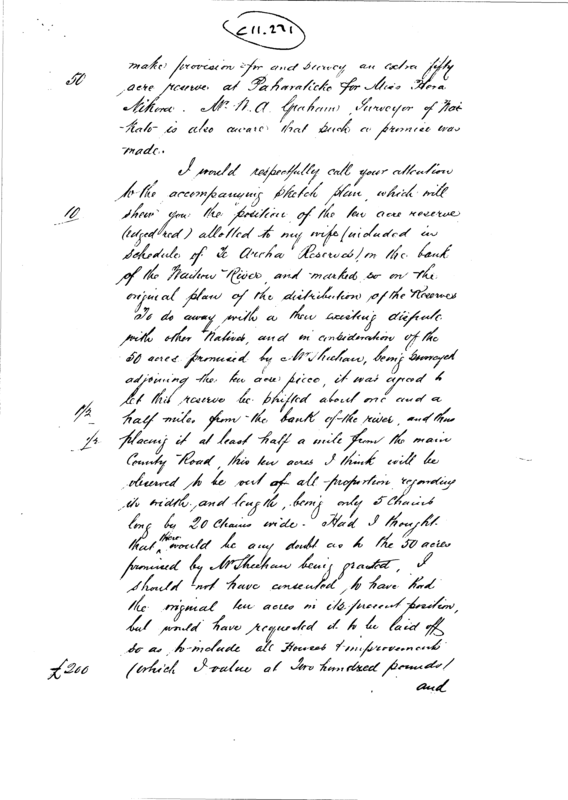 C11.271
make provision for and survey an extra fifty
50 acre reserve at Paharatiche for Miss Flora
Nikora. Mr. W. A. Graham, Surveyor of Wai-
-kato is also aware that such a promise was
made.
I would respectfully call your attention
to the accompanying sketch plan, which will
10 shew you the position of the ten acre reserve
(edged red) allotted to my wife (included in
schedule of Te Aroha Reserves) on the bank
of the Waihou River, and marked so on the
original plan of the distribution of the Reserves
To do away with a then existing dispute
with other Natives, and in consideration of the
50 acres promised by Mr. Sheehan, being surveyed
adjoining the ten acre piece, it was agreed to
let this reserve be shifted about one and a
1½ half miles from the bank of the river, and thus
½ placing it at least half a mile from the main
County Road, this ten acres I think will be
observed to be out of all proportion regarding
its width and length, being only 5 Chains
long by 20 Chains wide. Had I thought
that there would be any doubt as to the 50 acres
promised by Mr Sheehan being granted, I
should not have consented to have had
the original ten acres in its present position,
but would have requested it to be laid off
so as to include all Houses & improvements
£200 (which I value at Two hundred pounds)
and